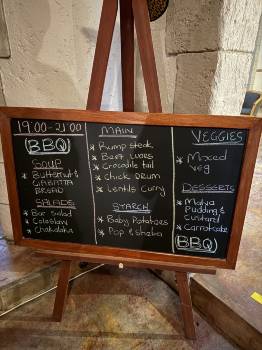 19:00-21:00
(BBQ)
SOUP
* Butternut &
CIABATTA
BREAD
SALADS
* Bar Salad
* Coleslaw
* Chakalaka
MAIN
* Rump steak
* Beef WORS
* Crocodile tail
* Chick DRUM
* Lentils Curry
STARCH
* Baby Potatoes
* Pap & sheba
VEGGIES
* Mixed
veg
DESSERTS
* Malva
Pudding &
custard
* Carrot cake
(BBQ)